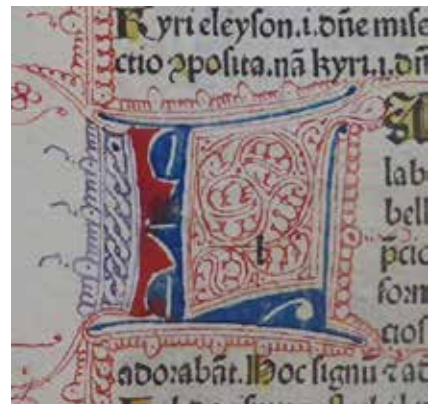 Kyri eleyson.i.dñe mise
ctio ꝯposita.nã kyri.i.dñ
l
lab
bell
p̄cio
form
cios
adorabãt.Hoc signũ ⁊ ad